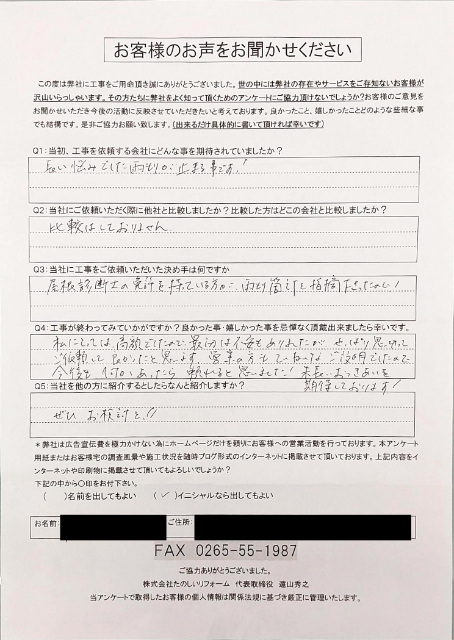 お客様のお声をお聞かせください
この度は弊社に工事をご用命頂き誠にありがとうございました。世の中には弊社の存在やサービスをご存知ないお客様が
沢山いらっしゃいます。その方たちに弊社をよく知って頂くためのアンケートにご協力頂けないでしょうか?お客様のご意見を
お聞かせいただき今後の活動に反映させていただきたいと考えております。良かったこと、嬉しかったことどのような些細な事
でも結構です。是非ご協力お願い致します。(出来るだけ具体的に書いて頂ければ幸いです)
Q1:当初、工事を依頼する会社にどんな事を期待されていましたか?
長い悩みでした雨もりが止まる事です!
Q2:当社にご依頼いただく際に他社と比較しましたか?比較した方はどこの会社と比較しましたか?
比較はしておりません
Q3:当社に工事をご依頼いただいた決め手は何ですか
屋根診断士の免許を持っている方が、雨もり箇所を指摘
Q4:工事が終わってみていかがですか?良かった事・嬉しかった事を忌憚なく頂戴出来ましたら幸いです。
私にとっては高額でしたので最初は不安もありましたが、思い切って
ご依頼して良かったと思います。営業の方もていねいなご説明でしたので
今後も何かあったら頼れると思いました!末長いおつきあいを
期待しております!
Q5:当社を他の方に紹介するとしたらなんと紹介しますか?
ぜひ お検討を!!
*弊社は広告宣伝費を極力かけない為にホームページだけを頼りにお客様への営業活動を行っております。本アンケート
用紙またはお客様宅の調査風景や施工状況を随時ブログ形式のインターネットに掲載させて頂いております。上記内容をイ
ンターネットや印刷物に掲載させて頂いてもよろしいでしょうか?
下記の中から〇印をお付下さい。
(  )名前を出してもよい (✓)イニシャルなら出してもよい
お名前: ご住所:
FAX 0265-55-1987
ご協力ありがとうございました。
株式会社たのしいリフォーム 代表取締役 遠山秀之
当アンケートで取得したお客様の個人情報は関係法規に基づき厳正に管理いたします。